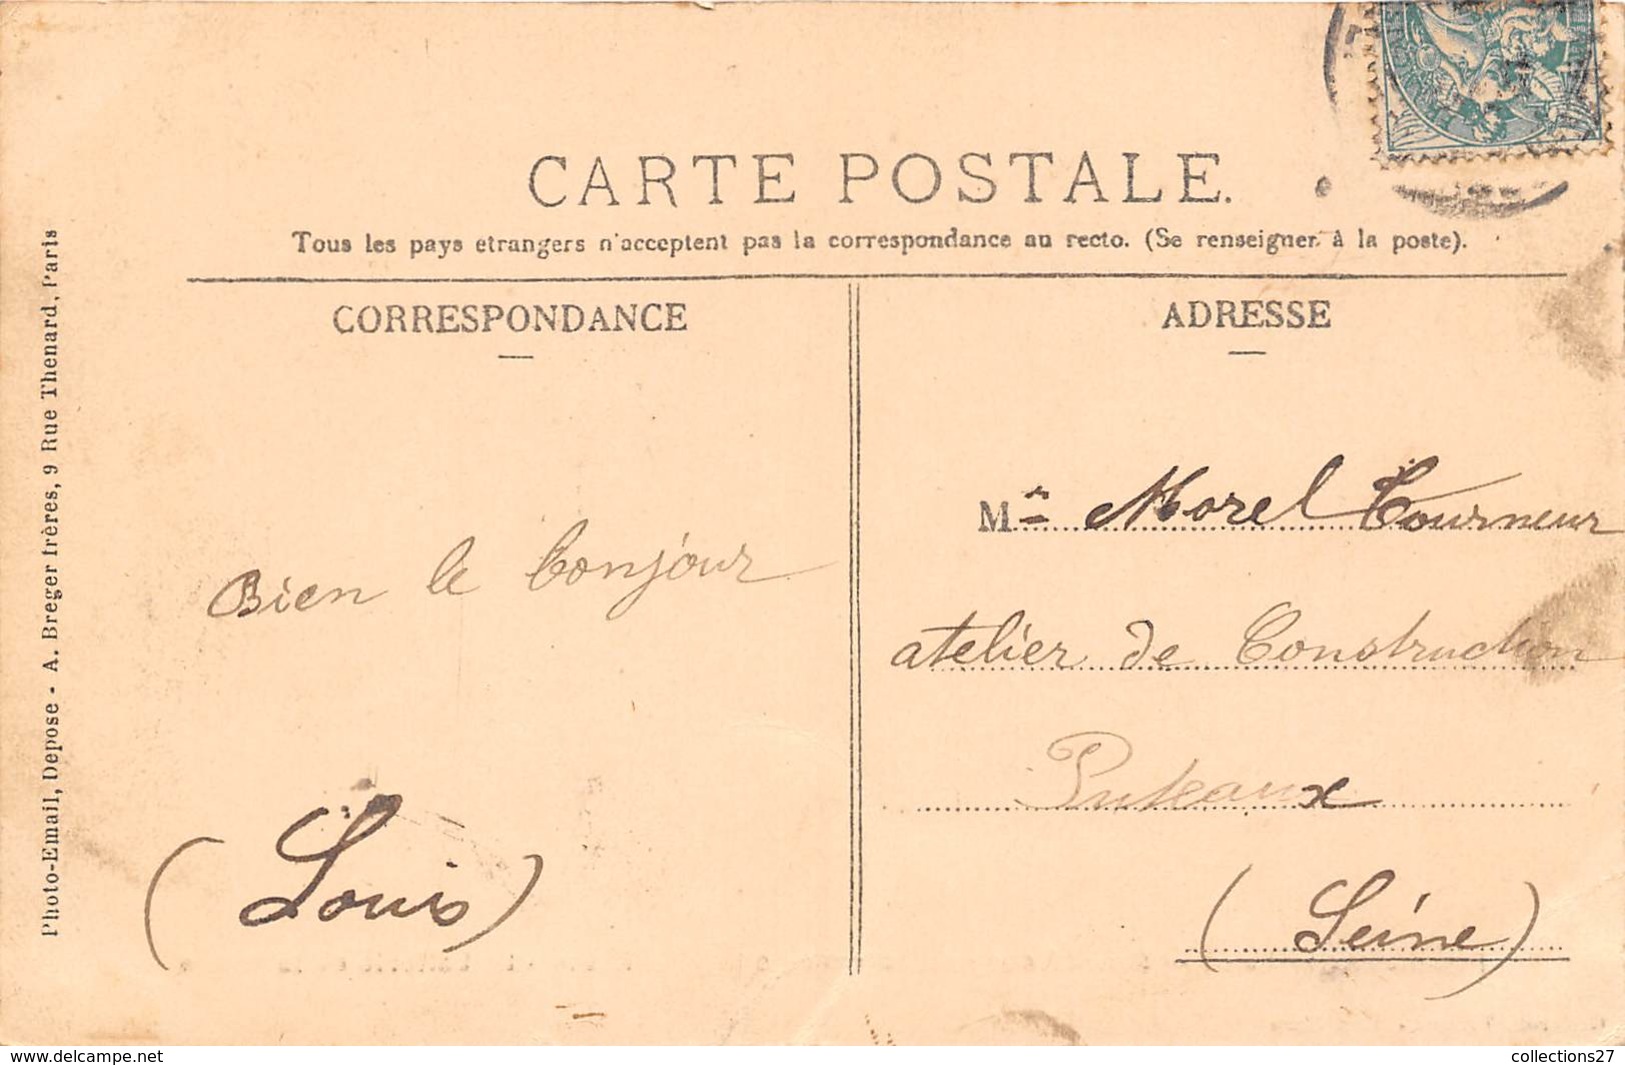 CARTE POSTALE.
Tous les pays etrangers n'acceptent pas la correspondance au recto. (Se renseigner à la poste).
CORRESPONDANCE
Bien le bonjour
(Louis)
ADRESSE
Mr Morel Tourneur
atelier de Construction
Puteaux
(Seine)
Photo-Email, Depose - A. Breger frères, 9 Rue Thenard, Paris
collections27